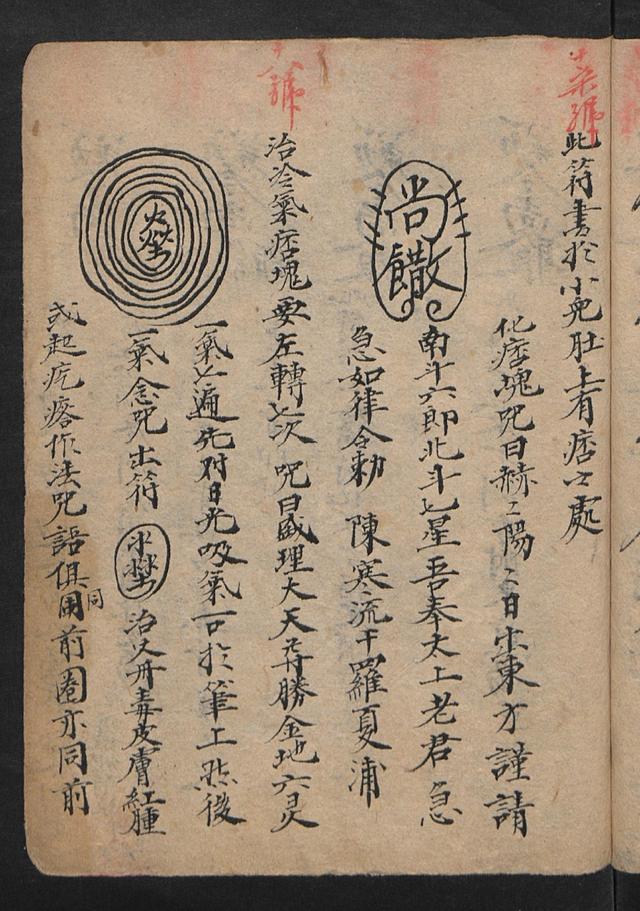 柒號
此符書於小兒肚上有痞之處
化痞塊咒曰赫〻陽〻日出東方謹請
尚
南斗六郎北斗七星吾奉太上老君急
急如律令勅 陳寒流干羅夏浦
八號
治冷氣痞塊要左轉七次 咒曰威理大天尊勝金地六灵
一氣七遍先对日光吸氣一口於筆上然後
一氣念咒出符 治火丹毒皮膚紅腫
或起疙瘩作法咒語俱用同前圈亦同前